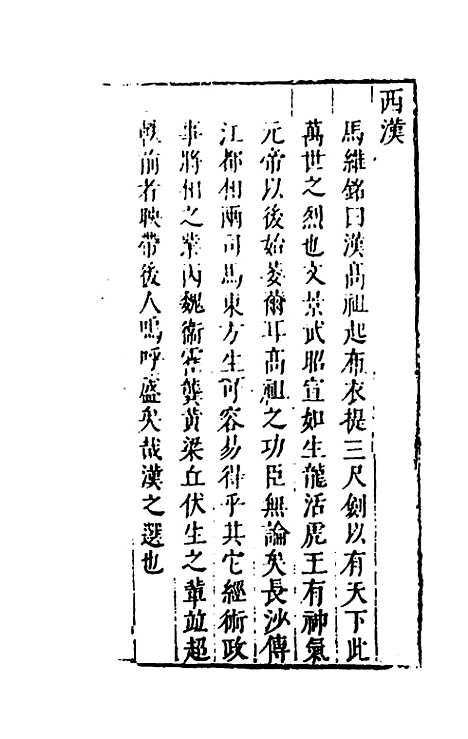 西漢
馬維銘曰漢高祖起布衣提三尺劍以有天下此
萬世之烈也文景武昭宣如生龍活虎王有神氣
元帝以後始萎薾耳高祖之功臣無論矣長沙傳
江都相兩司馬東方生可容易得乎其它經術政
事將相之業丙魏衞霍龔黃梁丘伏生之輩並超
軼前者映帶後人嗚呼盛矣哉漢之選也